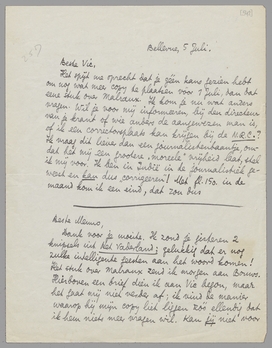 Bellevue, 5 Juli.
Beste Vic,
Het spijt me oprecht dat je géén kans gezien hebt
om nog wat meer copy te plaatsen vóór 1 Juli, dan dat
eene stuk over Malraux. Ik kom je nu wat anders
vragen. Wil je voor mij informeeren, bij den directeur
van je krant of wie anders de aangewezen man is,
of ik een correctorsplaats kan krijgen bij de N.R.C.?
Ik vraag dit liever dan een journalistenbaantje, om-
dat het mij een grootere "moreele" vrijheid laat, stel
ik mij voor. Ik ben in Indië in de journalistiek ge-
weest en kan dus corrigeeren! Met fl. 150. in de
maand kom ik een eind, dat zou dus
Beste Menno,
Dank voor je moeite. Ik zond je gisteren 2
knipsels uit Het Vaderland; gelukkig dat er nog
zulke intelligente geesten aan het woord komen!
Het stuk over Malraux zend ik morgen aan Bouws.
Hierboven een brief dien ik aan Vic begon, maar
het gaat mij niet verder af; ik vind de manier
waarop hij mijn copy liet liggen zóó ellendig dat
ik hem niets meer vragen wil. Kan jij niet voor